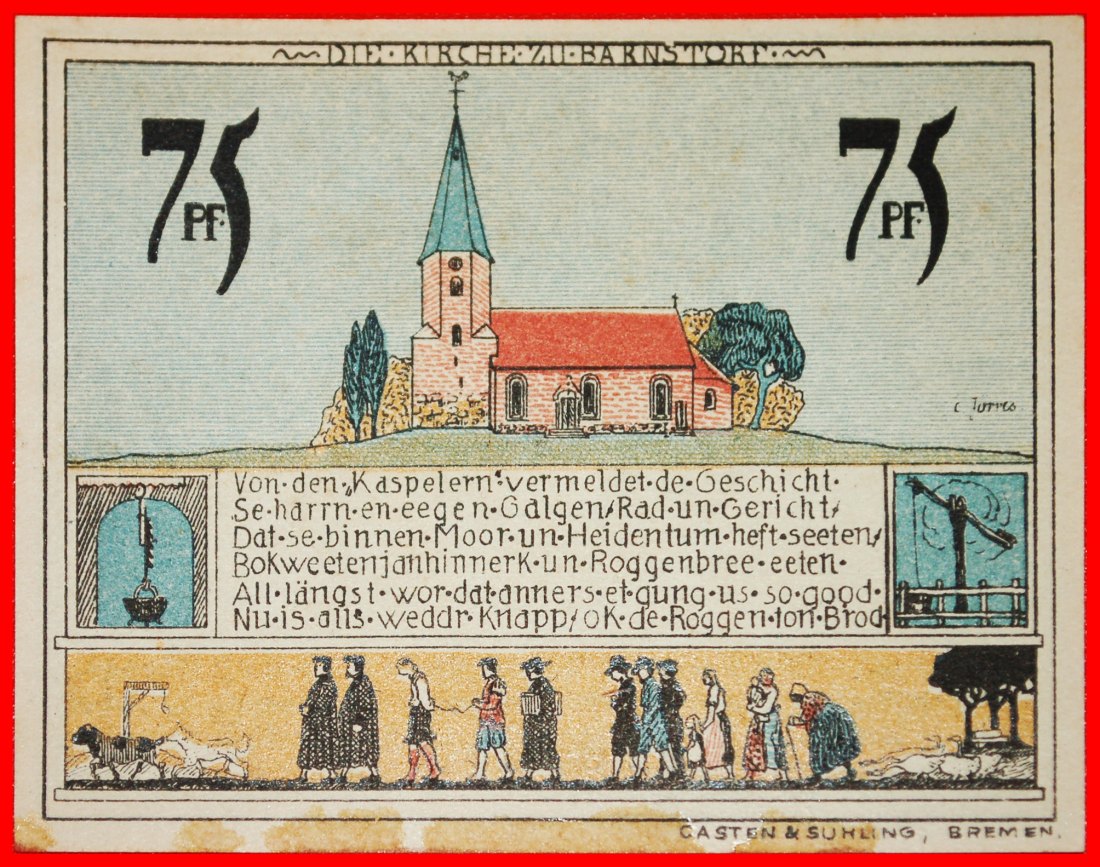 DIE·KIRCHE·ZU·BARNSTORF·
75 PF.
75 PF.
C. Jorres
Von·den·„Kaspelern“·vermeldet·de·Geschicht·
Se·harrn·en·eegen·Galgen/Rad·un·Gericht/
Dat·se·binnen·Moor·un·Heidentum·heft·seeten/
Bokweetenjanhinnerk·un·Roggenbree·eeten·
All·längst·wor·dat·anners·et·gung·us·so·good·
Nu·is·alls·weddr·Knapp/ok·de·Roggen·ton·Brod·
CASTEN & SUHLING, BREMEN.